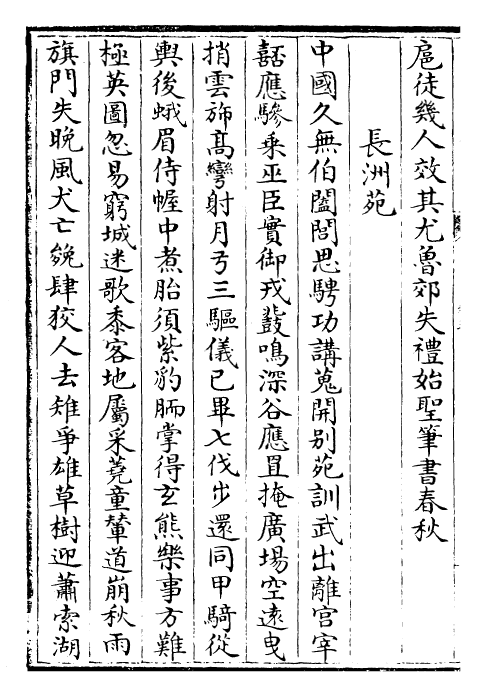 扈徒幾人效其尤魯郊失禮始聖筆書春秋
長洲苑
中國久無伯闔閭思騁功講蒐開别苑訓武出離宫宰
嚭應驂乗巫臣實御戎鼖鳴深谷應罝掩廣場空逺曳
捎雲斾髙彎射月弓三驅儀已畢七伐步還同甲騎從
輿後蛾眉侍幄中煮胎須紫豹胹掌得玄熊樂事方難
極英圖忽易窮城迷歌黍客地屬采蕘童輦道崩秋雨
旗門失晩風犬亡㕙肆狡人去雉爭雄草樹迎蕭索湖